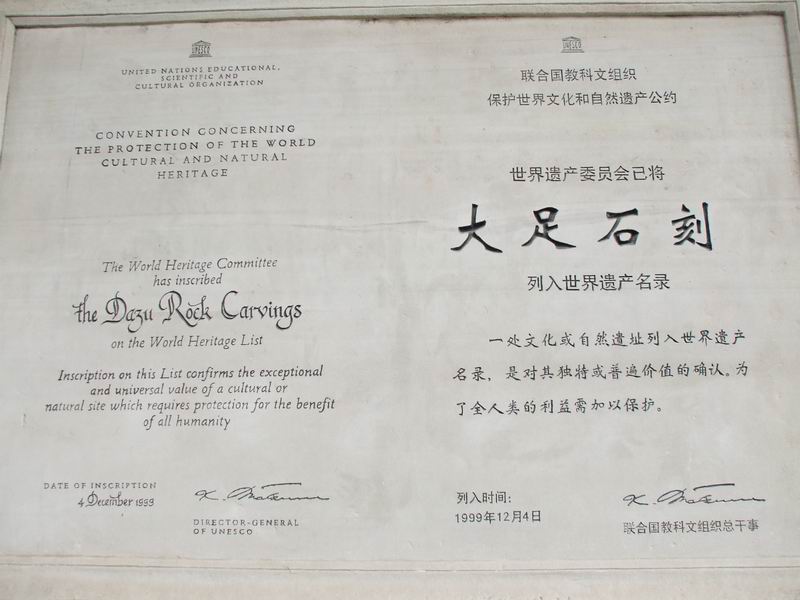 UNESCO
UNITED NATIONS EDUCATIONAL,
SCIENTIFIC AND
CULTURAL ORGANIZATION
CONVENTION CONCERNING
THE PROTECTION OF THE WORLD
CULTURAL AND NATURAL
HERITAGE
The World Heritage Committee
has inscribed
the Dazu Rock Carvings
on the World Heritage List
Inscription on this List confirms the exceptional
and universal value of a cultural or
natural site which requires protection for the benefit
of all humanity
DATE OF INSCRIPTION
4 December 1999
DIRECTOR-GENERAL
OF UNESCO
UNESCO
联合国教科文组织
保护世界文化和自然遗产公约
世界遗产委员会已将
大足石刻
列入世界遗产名录
一处文化或自然遗址列入世界遗产
名录，是对其独特或普遍价值的确认。为
了全人类的利益需加以保护。
列入时间:
1999年12月4日
联合国教科文组织总干事